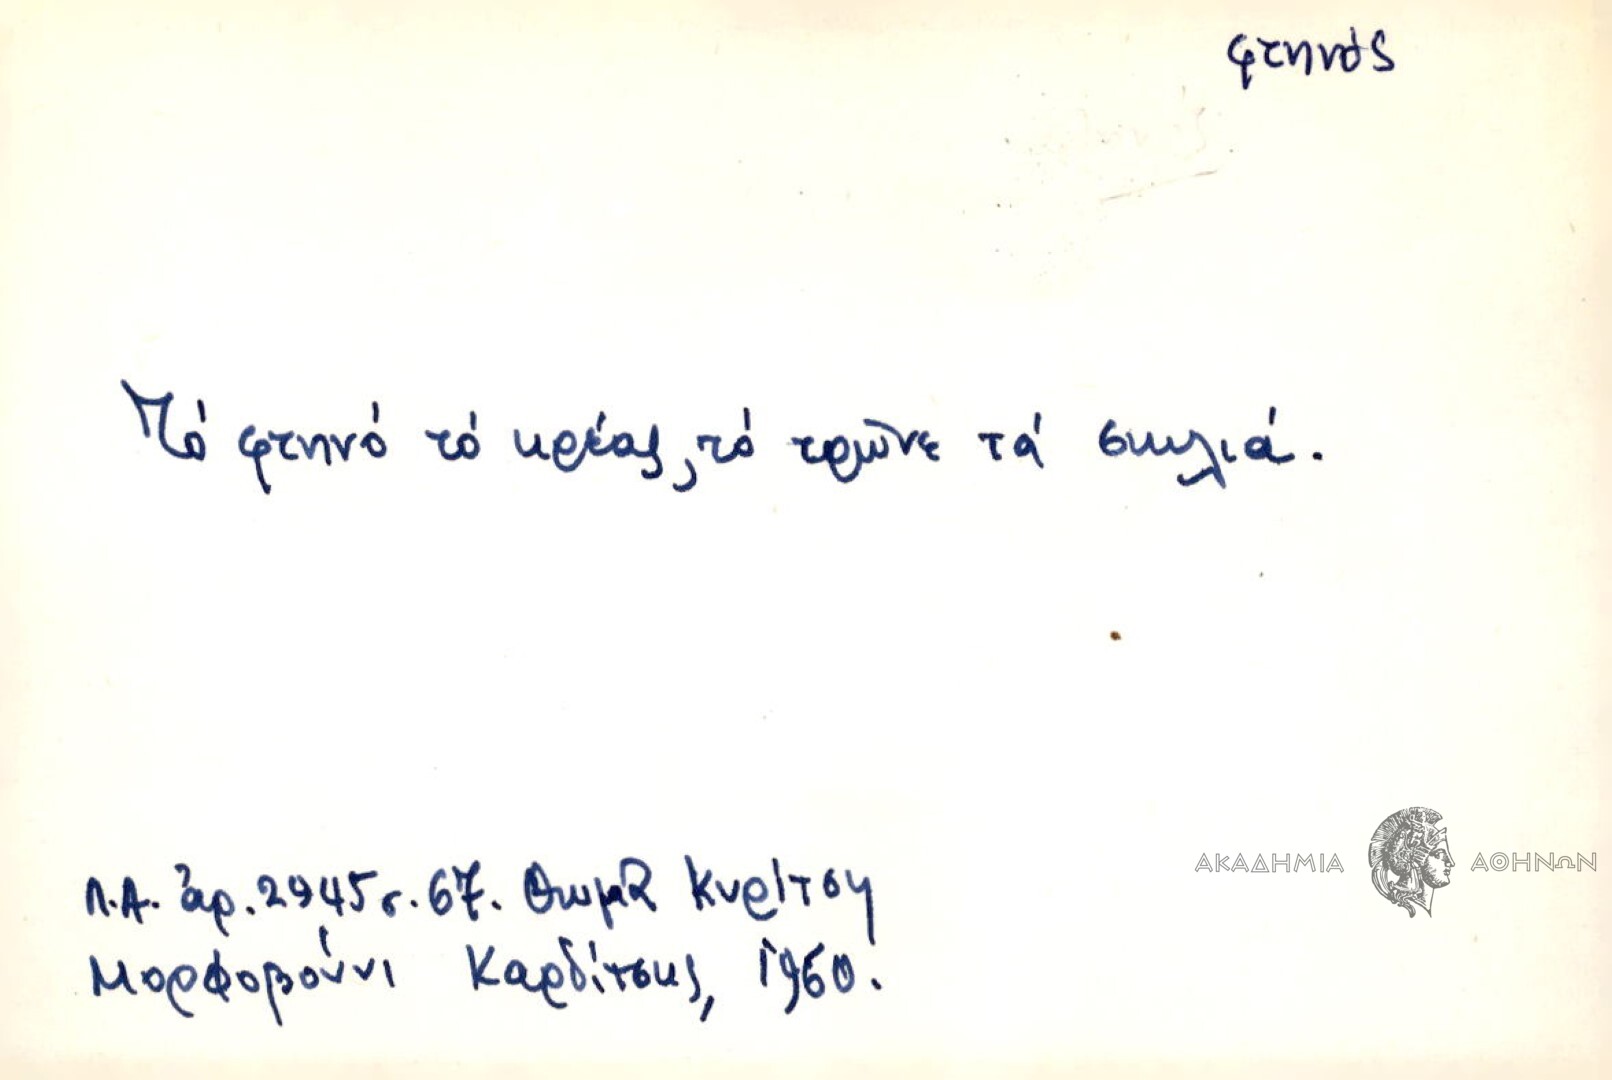 φτηνός
Τό φτηνό τό κρέας, τό τρῶνε τά σκυλιά.
ΑΚΑΔΗΜΙΑ ΑΘΗΝΩΝ
Λ.Α. ἀρ. 2945 σ. 67. Θωμᾶ Κυρίτση
Μορφοβούνι Καρδίτσης, 1960.